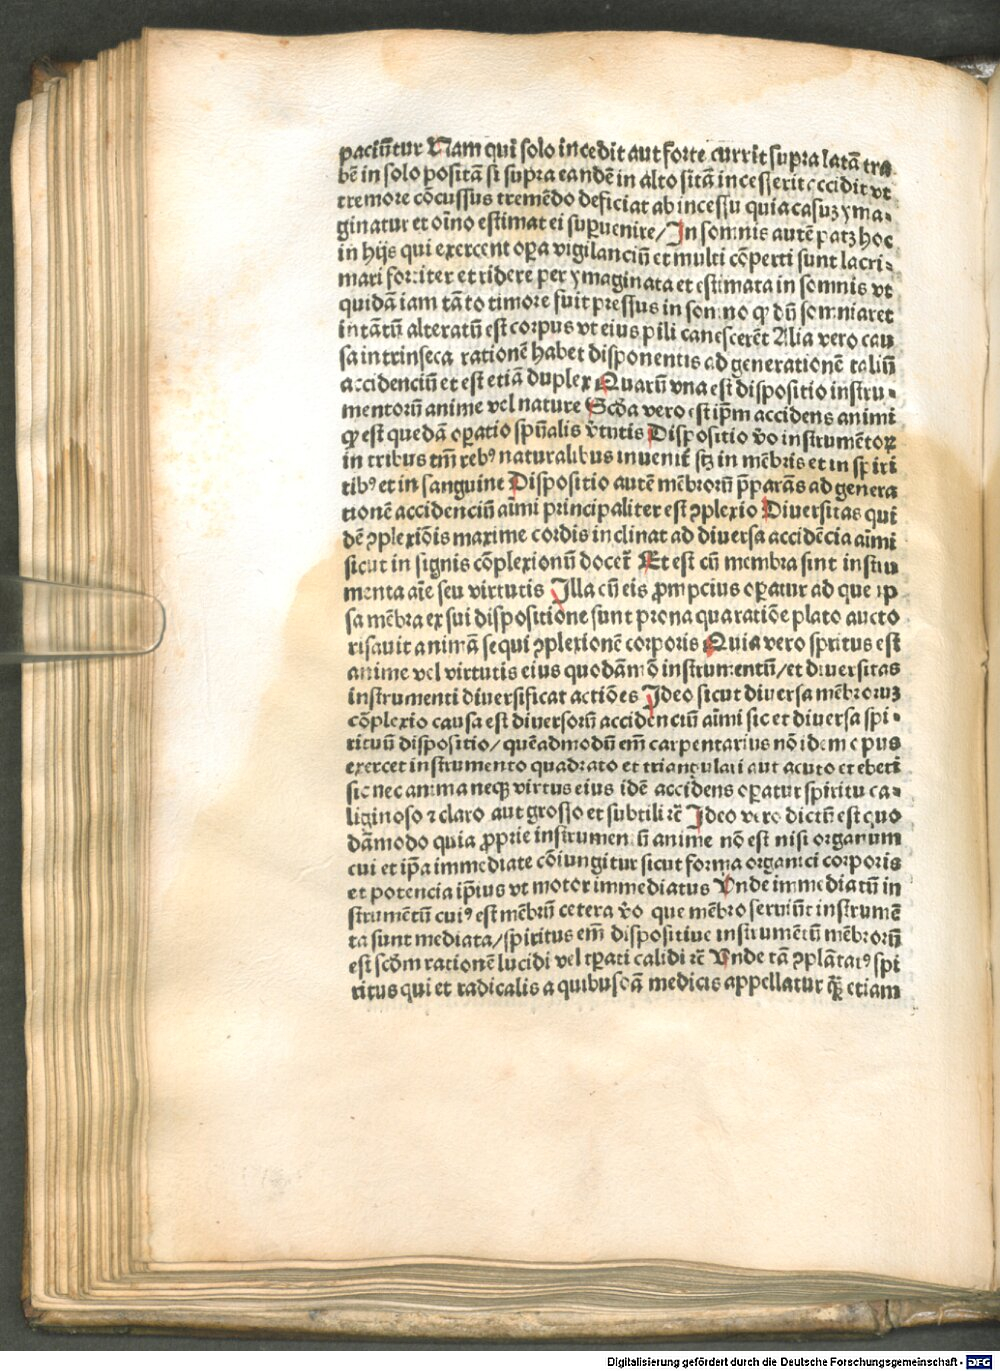 paciūtur Nam qui solo incedit aut forte currit supra latā tra
bē in solo positā si supra eandē in alto sitā incesserit accidit vt
tremore cōcussus tremēdo deficiat ab incessu quia casuꝫ yma⸗
ginatur et oīno estimat ei supuenire/ In somnis autē patꝫ hoc
in hijs qui exercent opa vigilanciū et multi cōperti sunt lacri⸗
mari fortiter et ridere per ymaginata et estimata in somnis vt
quidā iam tāto timore fuit pressus in somno ꝙ dū somniaret
intātū alteratū est corpus vt eius pili canescerēt Alia vero cau
sa intrinseca rationē habet disponentis ad generationē taliū
accidenciū et est etiā duplex Quarū vna est dispositio instru⸗
mentorū anime vel nature Scda vero est ipm accidens animi
ꝙ est quedā opatio spūalis v̄tutis Dispositio v̄o instrumētoꝝ
in tribus tm̄ rebꝰ naturalibus inuenit̄ scꝫ in mēbris et in spiri
tibꝰ et in sanguine Dispositio autē mēbrorū p̄parās ad genera
tionē accidenciū aīmi principaliter est ꝯplexio Diuersitas qui
dē ꝯplexiōis maxime cordis inclinat ad diuersa accidēcia aīmi
sicut in signis cōplexionū docet̄ Et est cū membra sint instru
menta aīe seu virtutis Illa cū eis ꝓmpcius opatur ad que ip
sa mēbra ex sui dispositione sunt prona qua ratiōe plato aucto
risauit animā sequi ꝯplexionē corporis Quia vero spritus est
anime vel virtutis eius quodāmō instrumentū/et diuersitas
instrumenti diuersificat actiōes Ideo sicut diuersa mēbroruꝫ
cōplexio causa est diuersorū accidenciū aīmi sic et diuersa spi⸗
rituū dispositio/ quēadmodū em̄ carpentarius nō idem opus
exercet instrumento quadrato et triangulari aut acuto et ebeti
sic nec anima neqꝫ virtus eius idē accidens opatur spiritu ca⸗
liginoso ⁊ claro aut grosso et subtili ⁊c̄ Ideo vero dictū est quo
dāmodo quia ꝓprie instrumentū anime nō est nisi organum
cui et ip̄a immediate cōiungitur sicut forma organici corporis
et potencia ip̄ius vt motor immediatus Vnde immediatū in
strumētū cuiꝰ est mēbrū cetera v̄o que mēbro seruiūt instrumē
ta sunt mediata/spiritus em̄ dispositiue instrumētū mēbrorū
est scdm rationē lucidi vel tp̄ati calidi ⁊c̄ Vnde tā ꝯplātatꝰ spi
ritus qui et radicalis a quibusdā medicis appellatur ꝙ̄ etiam
Digitalisierung gefördert durch die Deutsche Forschungsgemeinschaft - DFG